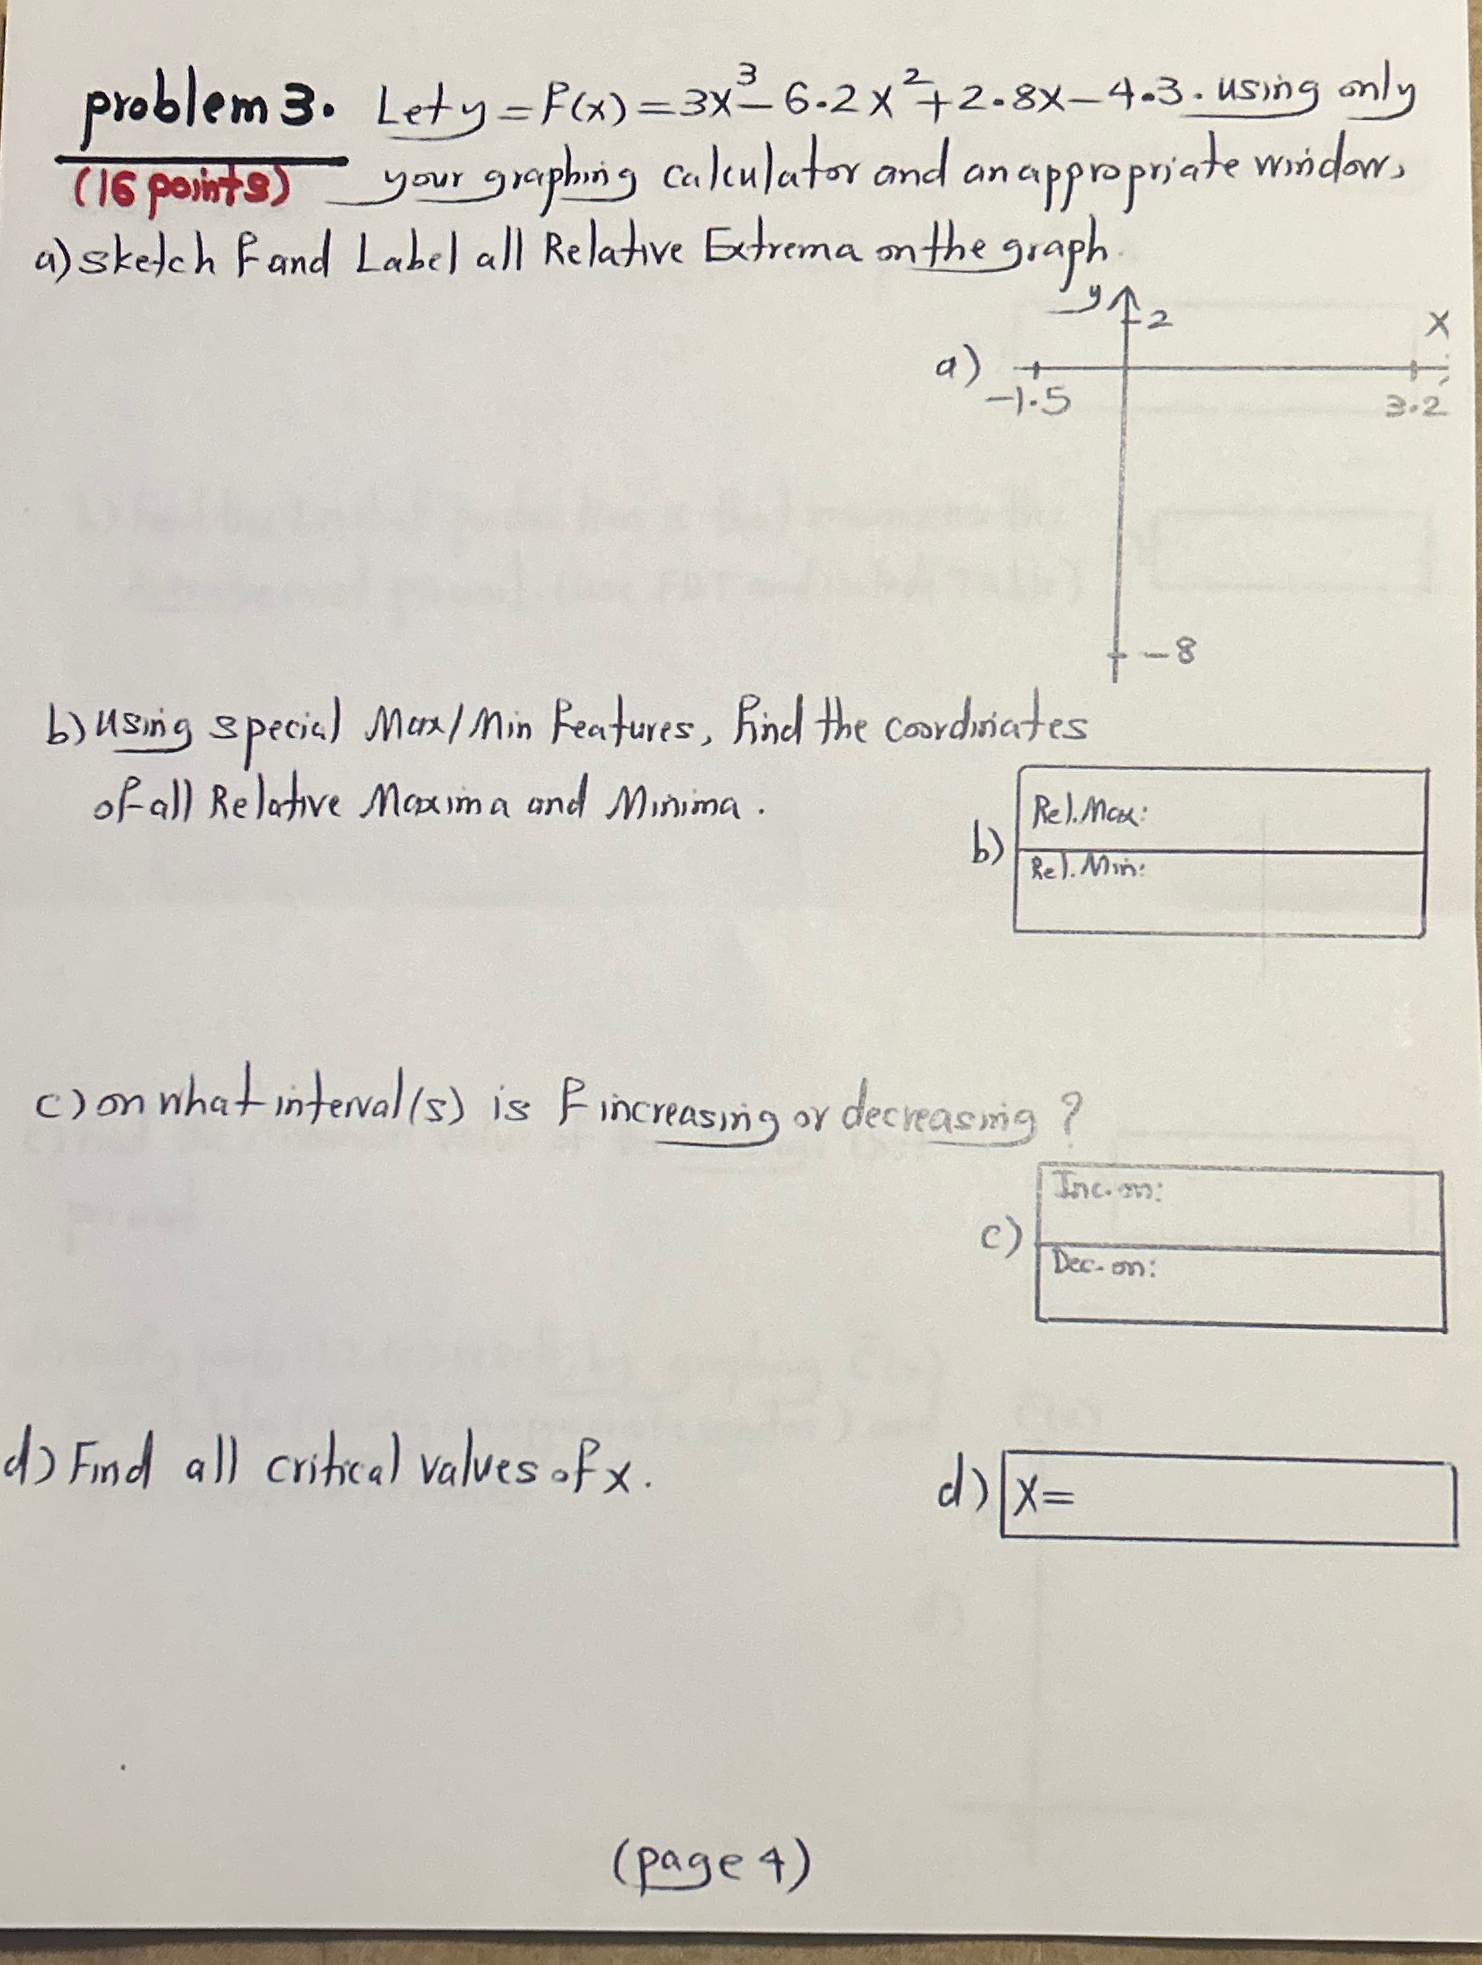 problem 3. Let y = f(x) = 3x³ - 6.2x² + 2.8x - 4.3. using only
(16 points) your graphing calculator and an appropriate window,
a) sketch f and Label all Relative Extrema on the graph.
y
2
x
a)
-1.5
3.2
-8
b) using special Max/Min features, find the coordinates
of all Relative Maxima and Minima.
Rel. Max:
b)
Rel. Min:
c) on what interval(s) is f increasing or decreasing?
Inc. on:
c)
Dec. on:
d) Find all critical values of x.
d) x=
(page 4)